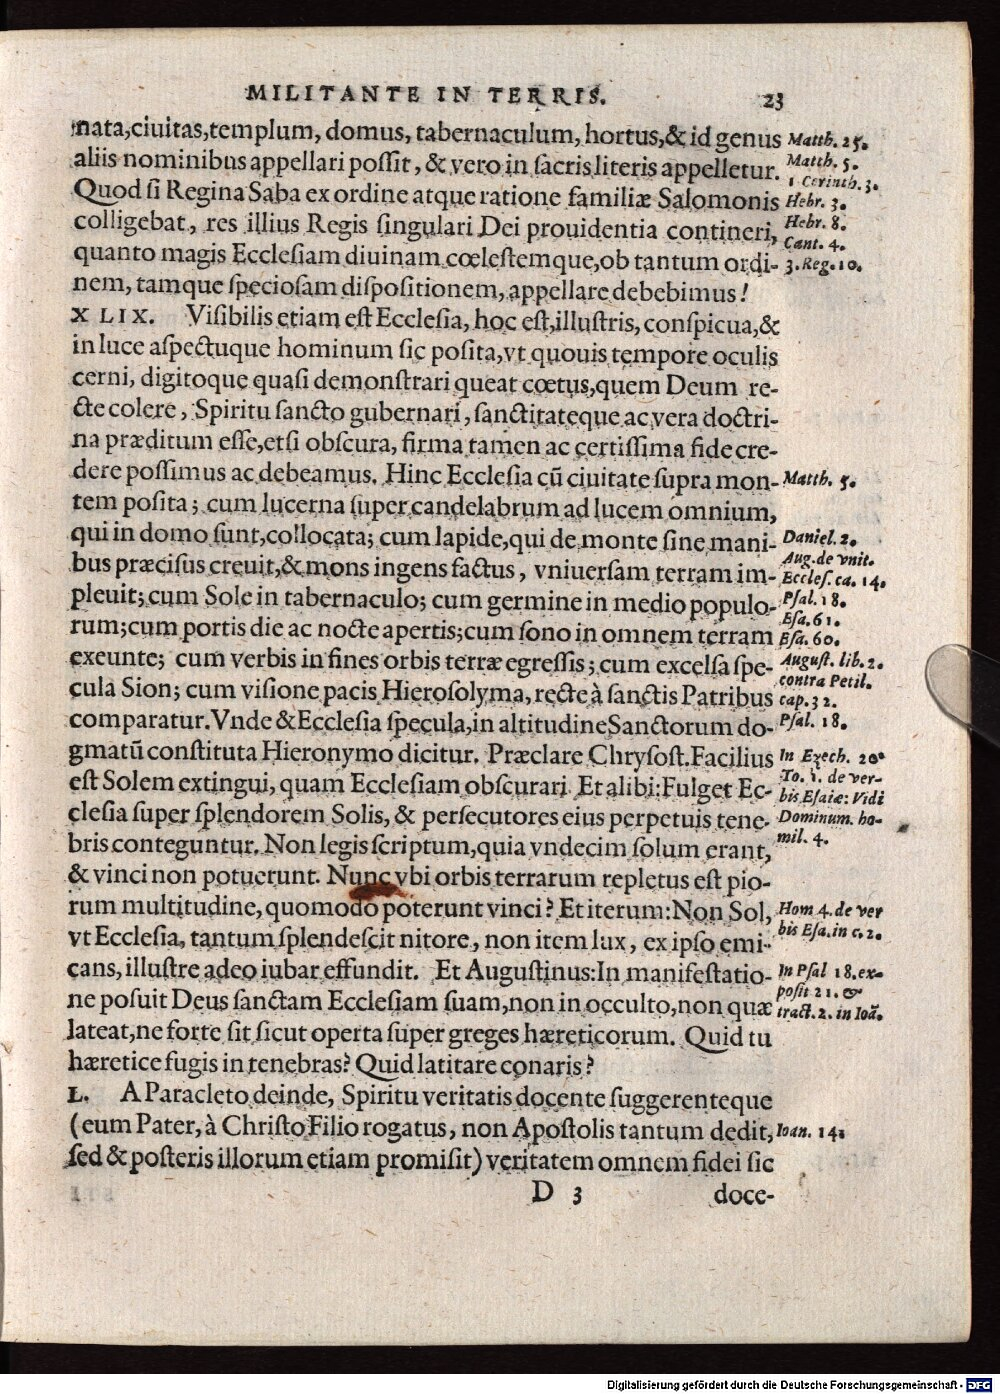 MILITANTE IN TERRIS. 23
nata,ciuitas,templum, domus, tabernaculum, hortus,& id genus
aliis nominibus appellari possit, & vero in sacris literis appelletur.
Quod si Regina Saba ex ordine atque ratione familiæ Salomonis
colligebat, res illius Regis singulari Dei prouidentia contineri,
quanto magis Ecclesiam diuinam cœlestemque,ob tantum ordi-
nem, tamque speciosam dispositionem, appellare debebimus!
XLIX. Visibilis etiam est Ecclesia, hoc est,illustris, conspicua,&
in luce aspectuque hominum sic posita,vt quouis tempore oculis
cerni, digitoque quasi demonstrari queat cœtus,quem Deum re-
cte colere, Spiritu sancto gubernari, sanctitateque ac vera doctri-
na præditum esse,etsi obscura, firma tamen ac certissima fide cre-
dere possimus ac debeamus. Hinc Ecclesia cū ciuitate supra mon-
tem posita; cum lucerna super candelabrum ad lucem omnium,
qui in domo sunt,collocata; cum lapide,qui de monte sine mani-
bus præcisus creuit,& mons ingens factus, vniuersam terram im-
pleuit; cum Sole in tabernaculo; cum germine in medio populo-
rum;cum portis die ac nocte apertis;cum sono in omnem terram
exeunte; cum verbis in fines orbis terræ egressis; cum excelsa spe-
cula Sion; cum visione pacis Hierosolyma, recte à sanctis Patribus
comparatur. Vnde & Ecclesia specula,in altitudine Sanctorum do-
gmatū constituta Hieronymo dicitur. Præclare Chrysost. Facilius
est Solem extingui, quam Ecclesiam obscurari. Et alibi: Fulget Ec-
clesia super splendorem Solis, & persecutores eius perpetuis tene-
bris conteguntur. Non legis scriptum,quia vndecim solum erant,
& vinci non potuerunt. Nunc vbi orbis terrarum repletus est pio-
rum multitudine, quomodo poterunt vinci? Et iterum: Non Sol,
vt Ecclesia, tantum splendescit nitore, non item lux, ex ipso emi-
cans, illustre adeo iubar effundit. Et Augustinus: In manifestatio-
ne posuit Deus sanctam Ecclesiam suam,non in occulto,non quæ
lateat,ne forte sit sicut operta super greges hæreticorum. Quid tu
hæretice fugis in tenebras? Quid latitare conaris?
L. A Paracleto deinde, Spiritu veritatis docente suggerenteque
(eum Pater, à Christo Filio rogatus, non Apostolis tantum dedit,
sed & posteris illorum etiam promisit) veritatem omnem fidei sic
D 3 doce-
Matth. 25.
Matth. 5.
1 Corinth. 3.
Hebr. 3.
Hebr. 8.
Cant. 4.
3. Reg. 10.
Matth. 5.
Daniel. 2.
Aug. de vnit.
Eccles. ca. 14.
Psal. 18.
Esa. 61.
Esa. 60.
August. lib. 2.
contra Petil.
cap. 32.
Psal. 18.
In Ezech. 20.
To. 1. de ver-
bis Esaiæ: Vidi
Dominum. ho-
mil. 4.
Hom 4. de ver
bis Esa. in c. 2.
In Psal 18. ex-
posit 21. &
tract. 2. in Ioā.
Ioan. 14.
Digitalisierung gefördert durch die Deutsche Forschungsgemeinschaft - DFG